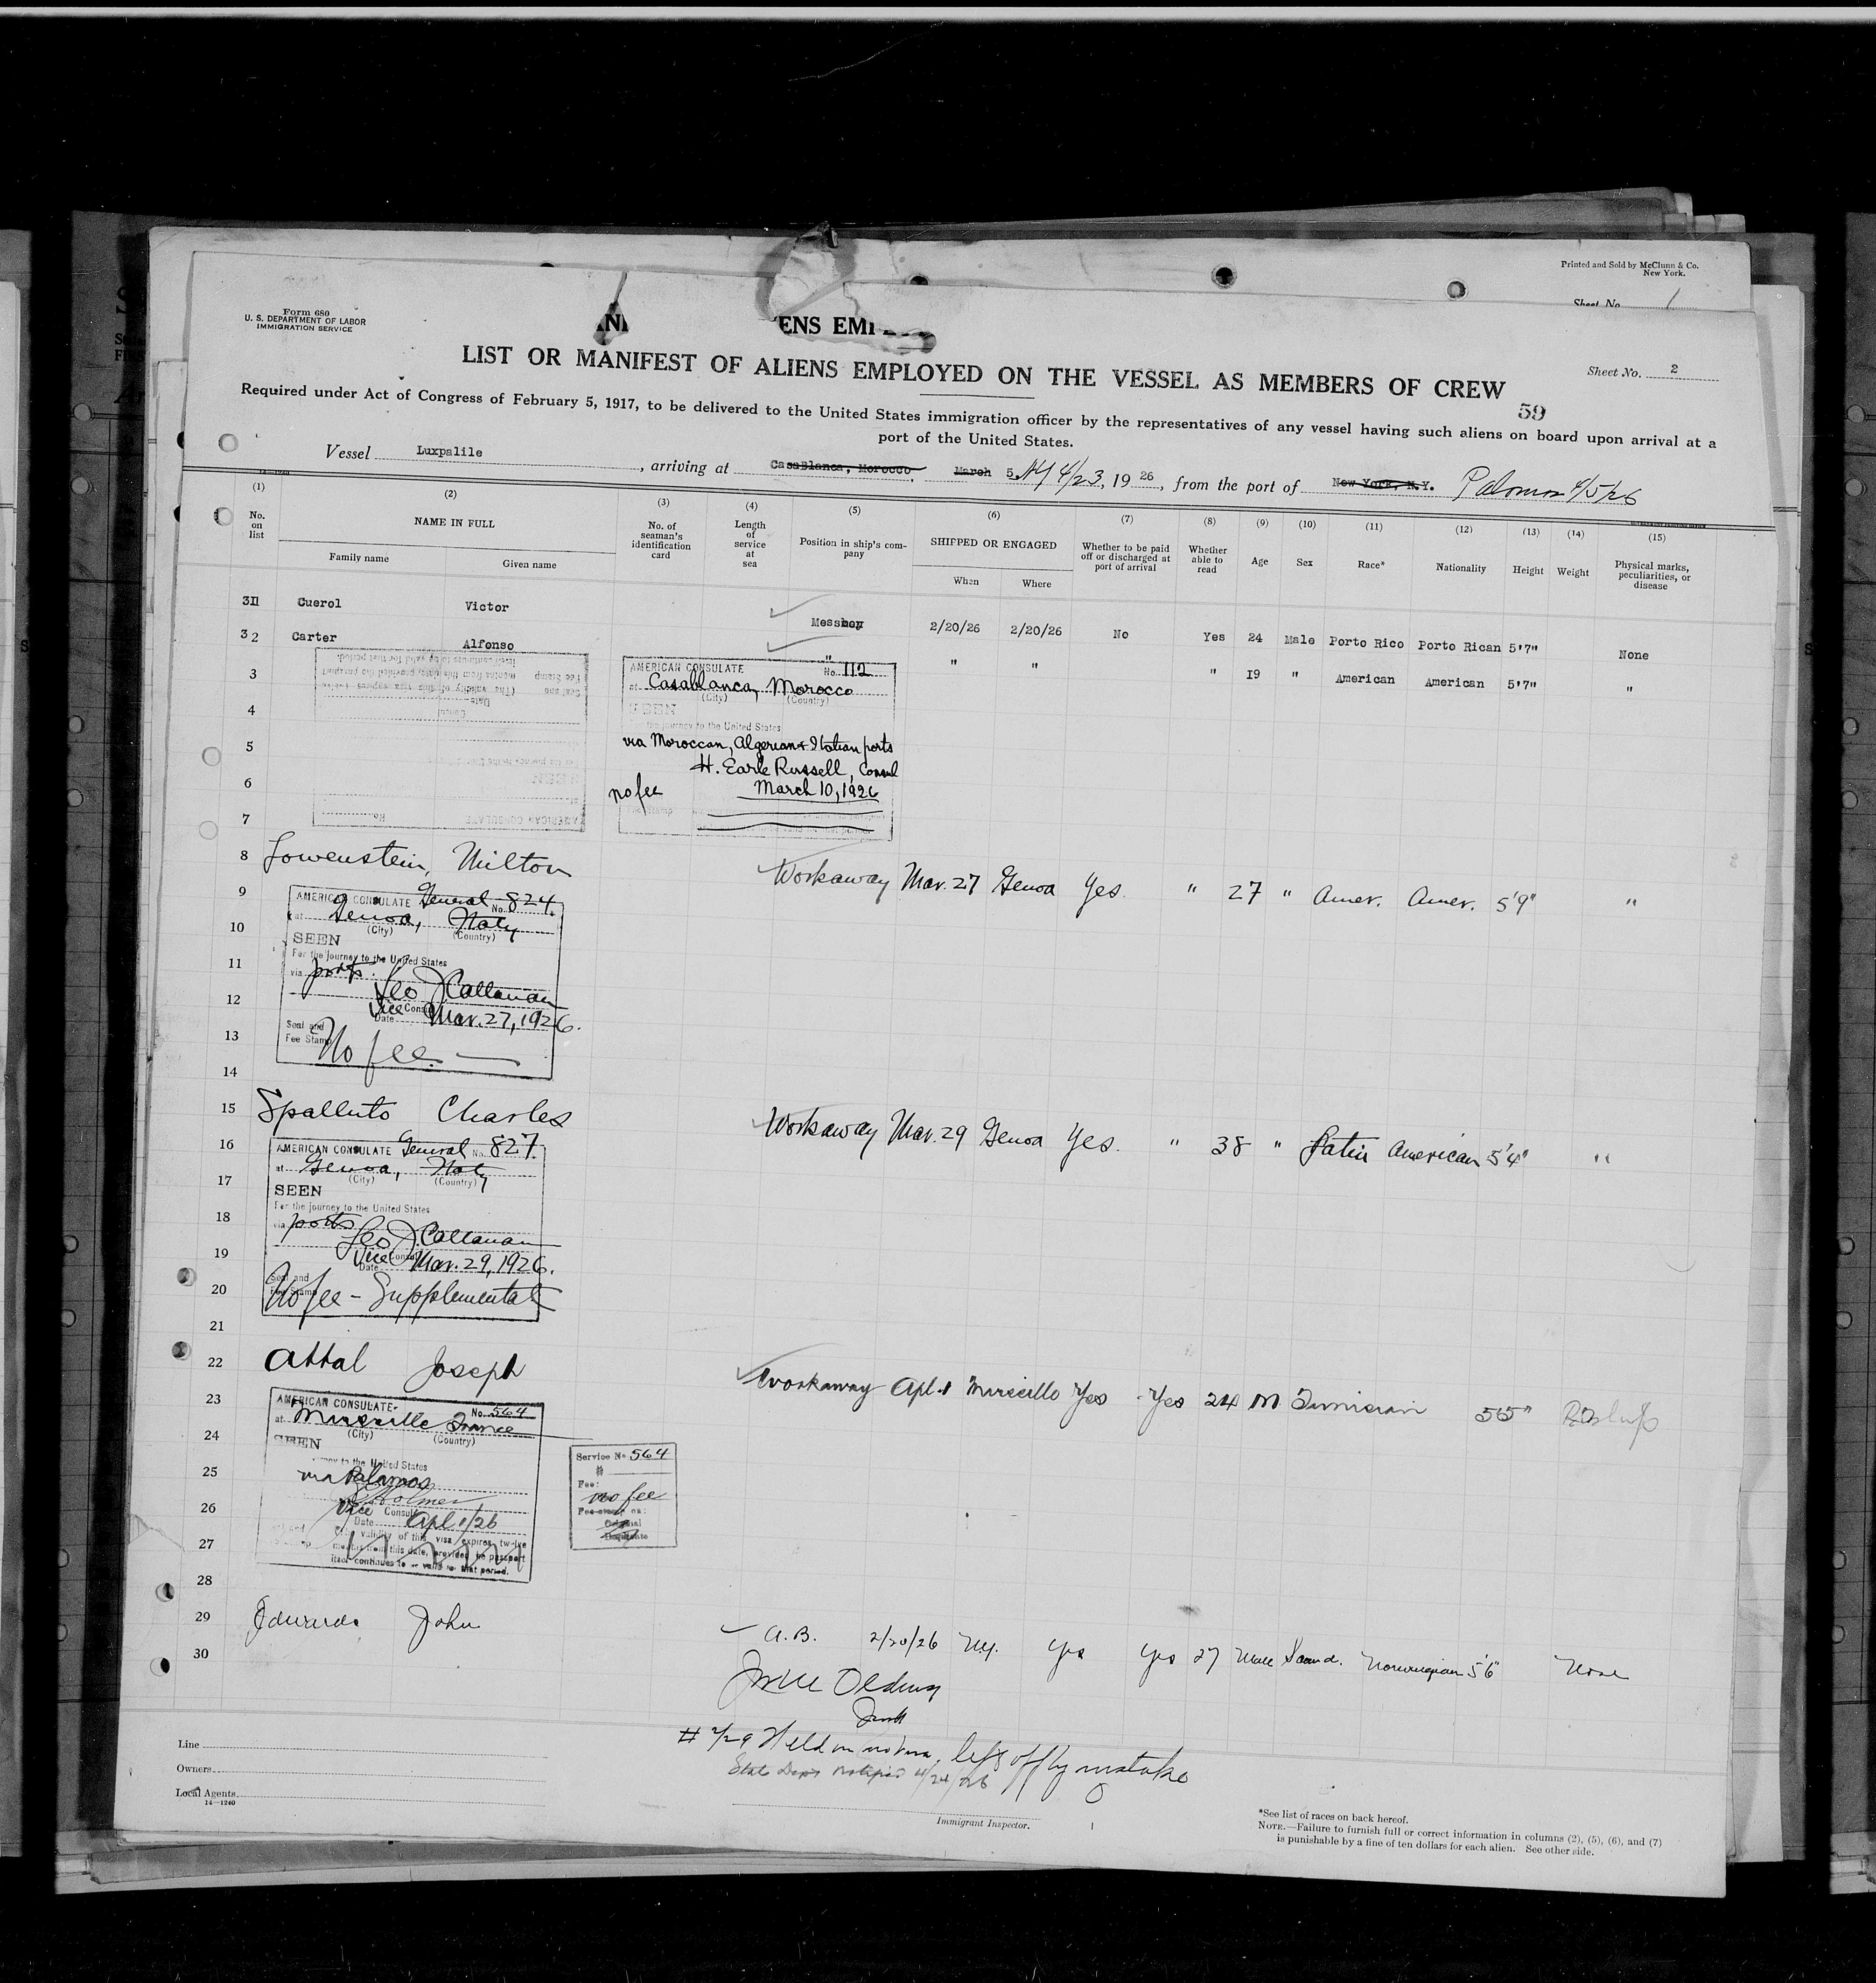 Printed and Sold by McClunn & Co.
New York.
Sheet No. 1
Form 680
U. S. DEPARTMENT OF LABOR
IMMIGRATION SERVICE
ENS EMP
LIST OR MANIFEST OF ALIENS EMPLOYED ON THE VESSEL AS MEMBERS OF CREW
Sheet No. 2
59
Required under Act of Congress of February 5, 1917, to be delivered to the United States immigration officer by the representatives of any vessel having such aliens on board upon arrival at a
port of the United States.
Vessel Luxpalile, arriving at CasaBlanca, Morocco March 5 NY 4/23, 1926, from the port of New York, N.Y. Palamos 4/5/26
(1) (2) (3) (4) (5) (6) (7) (8) (9) (10) (11) (12) (13) (14) (15)
No. on list NAME IN FULL No. of seaman's identification card Length of service at sea Position in ship's company SHIPPED OR ENGAGED Whether to be paid off or discharged at port of arrival Whether able to read Age Sex Race* Nationality Height Weight Physical marks, peculiarities, or disease
Family name Given name When Where
31 Cuerol Victor Messboy 2/20/26 2/20/26 No Yes 24 Male Porto Rico Porto Rican 5'7" None
32 Carter Alfonso " " " " 19 " American American 5'7" "
3
AMERICAN CONSULATE No. 112
at Casablanca, Morocco
(City) (Country)
4
SEEN
For the journey to the United States
5
via Moroccan, Algerian & Italian ports
H. Earle Russell, Consul
6
no fee March 10, 1926
7
8 Lowenstein, Milton Workaway Mar. 27 Genoa Yes. " 27 " Amer. Amer. 5'9" "
9
AMERICAN CONSULATE General No. 824
at Genoa, Italy
10
(City) (Country)
SEEN
11
For the journey to the United States
via ports.
12
Leo J. Callanan
Vice Consul
Date Mar. 27, 1926.
13
Seal and
Fee Stamp
No fee.
14
15 Spalluto Charles Workaway Mar. 29 Genoa Yes. " 38 " Latin American 5'4" "
16
AMERICAN CONSULATE General No. 827.
at Genoa, Italy
17
(City) (Country)
SEEN
For the journey to the United States
18
via ports
Leo J. Callanan
19
Vice Consul
Date Mar. 29, 1926.
20
Seal and
No fee - Supplemental
21
22 Attal Joseph Workaway Apl. 1 Yes Yes 24 M Tunisian 5'5"
23
AMERICAN CONSULATE No. 564
at Marseille France
24
(City) (Country)
SEEN
25
journey to the United States
via Palamos
26
Vice Consul
Date Apl 1/26
27
validity of this visa expires twelve
months from this date, provided the passport
itself continues to be valid for that period.
Service No 564
Fee:
no fee
28
29 Edwards John A.B. 2/20/26 N.Y. Yes Yes 27 Male Scand. Norwegian 5'6" None
30
left off by mistake
State Dept Notified 4/24/26
Line
Owners
Local Agents
14—1240
Immigrant Inspector.
*See list of races on back hereof.
NOTE.—Failure to furnish full or correct information in columns (2), (5), (6), and (7)
is punishable by a fine of ten dollars for each alien. See other side.